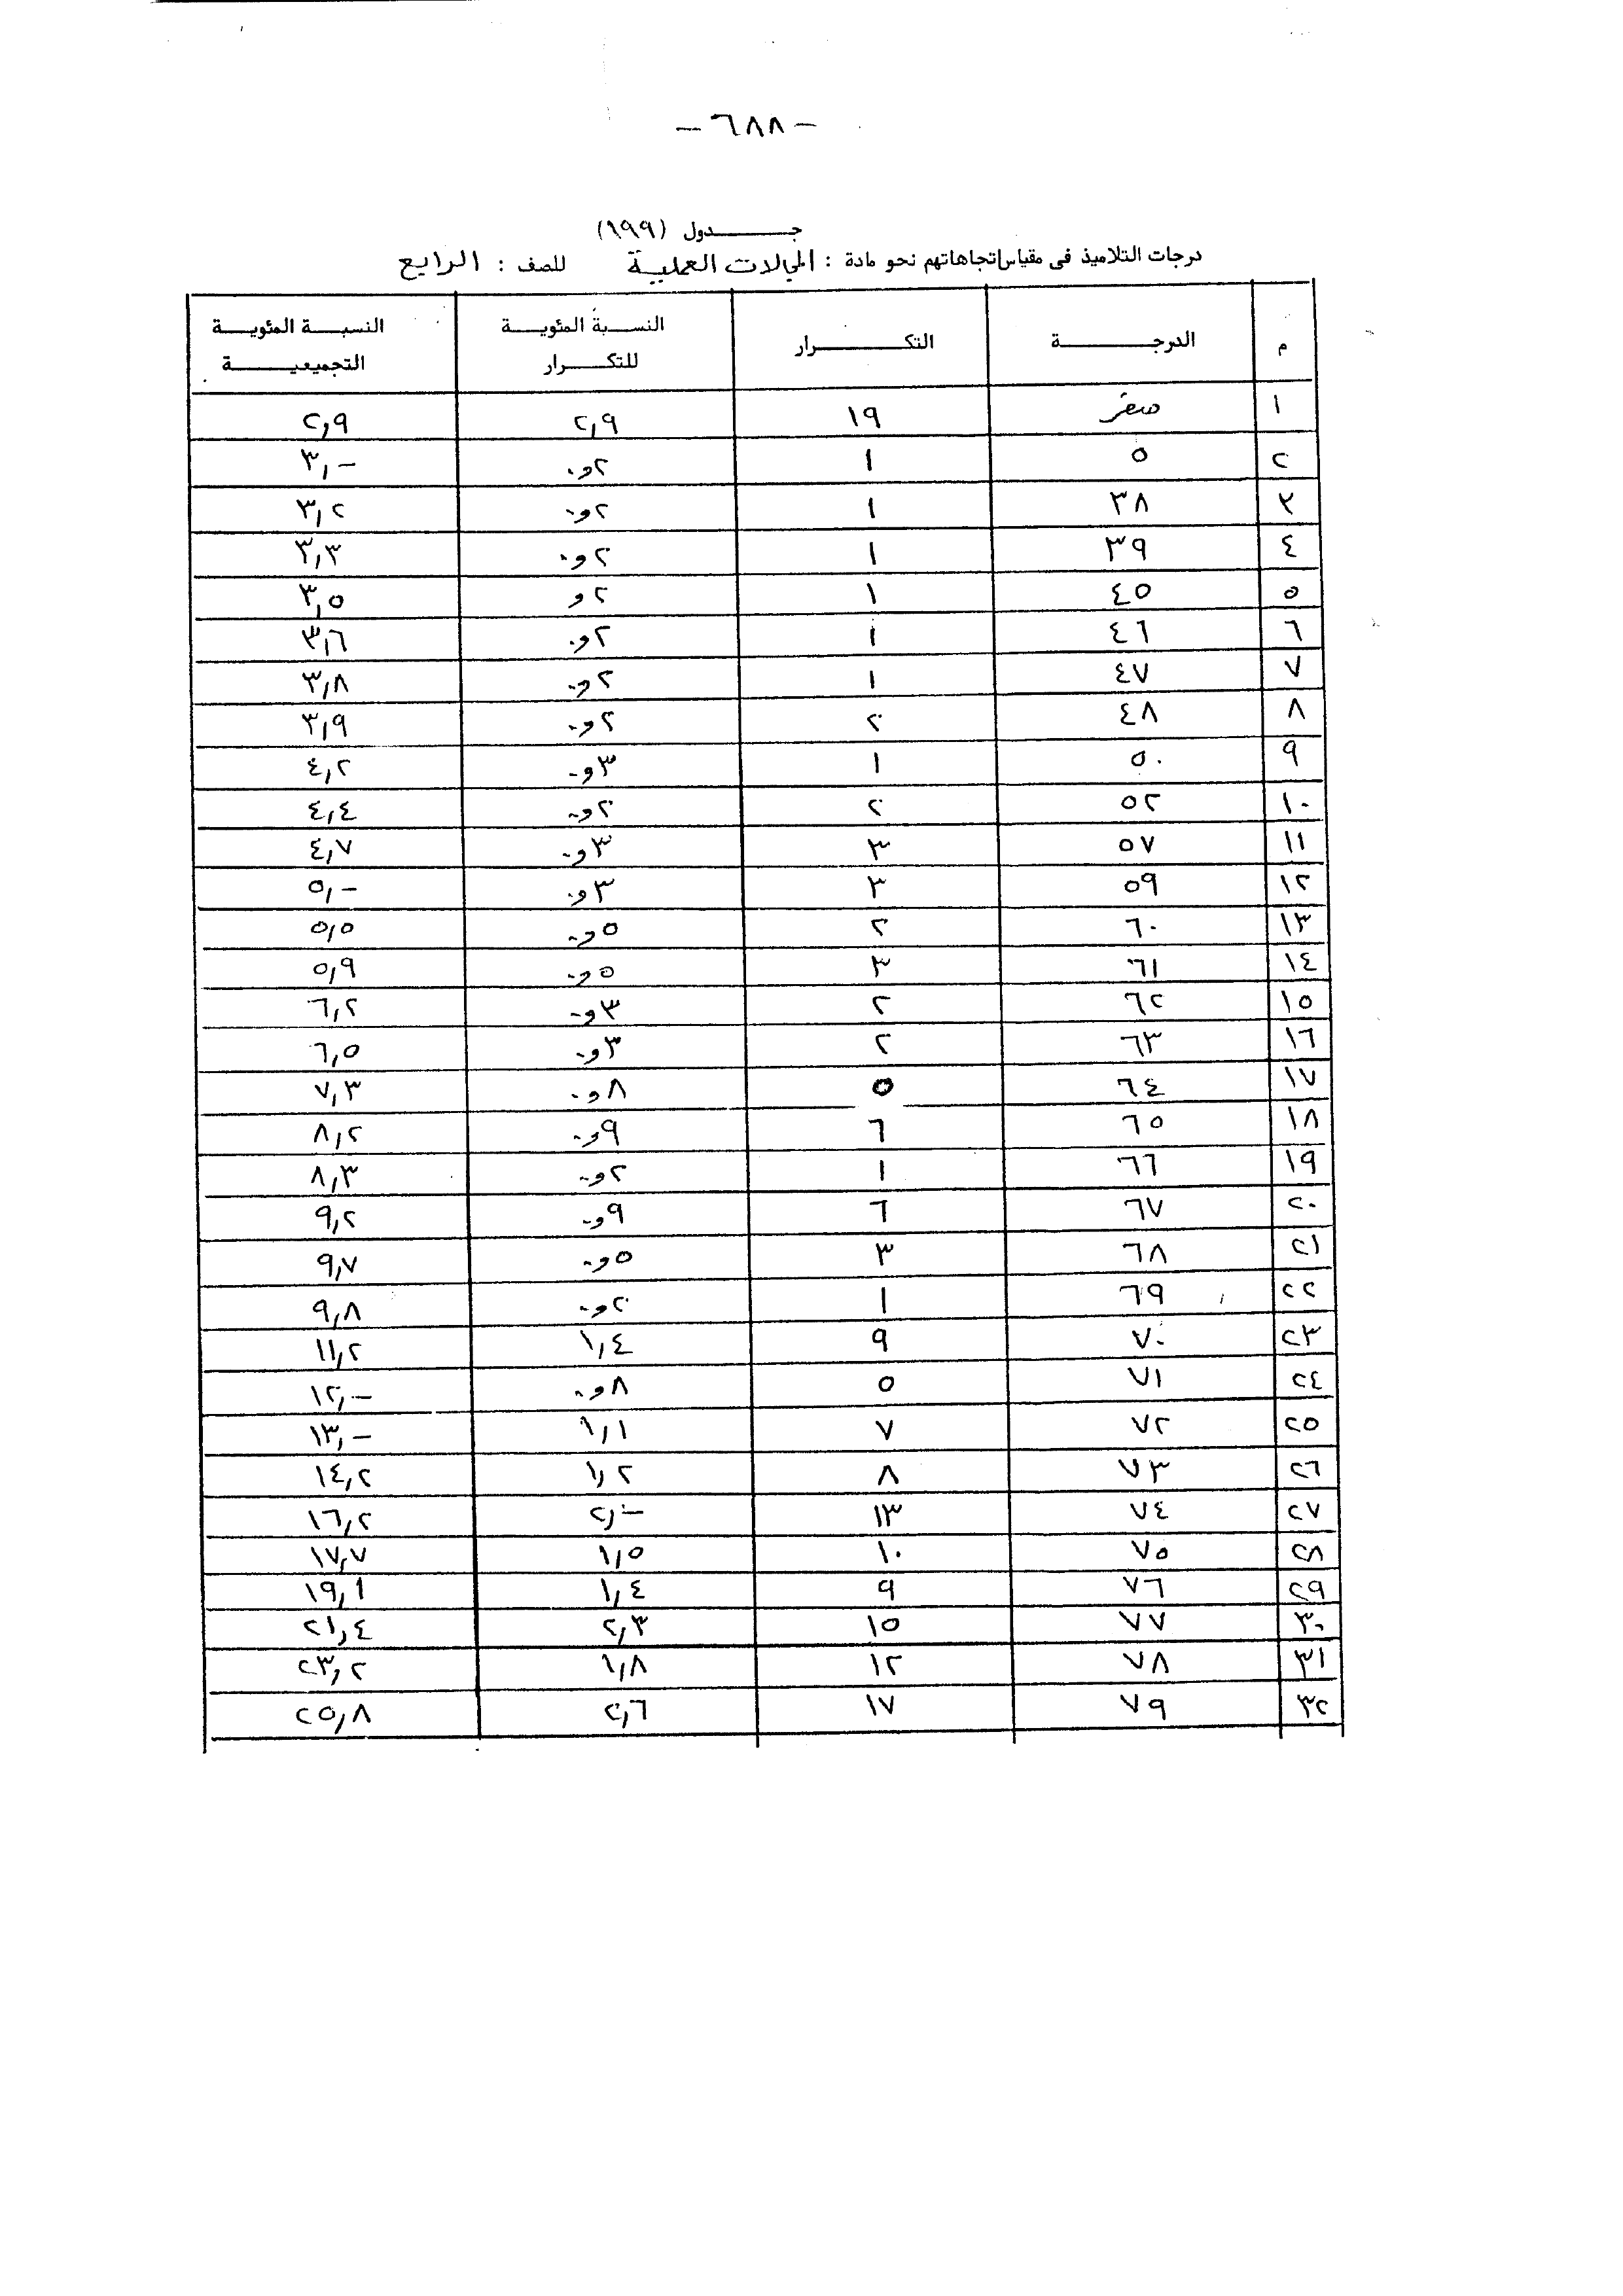 - ٦٨٨ -
جدول (١٩٩)
درجات التلاميذ فى مقياس اتجاهاتهم نحو مادة : المجالات العملية للصف : الرابع
م الدرجة التكرار النسبة المئوية للتكرار النسبة المئوية التجميعية
١ صفر ١٩ ٢,٩ ٢,٩
٢ ٥ ١ ٢و٠ ٣,-
٣ ٣٨ ١ ٢و٠ ٣,٢
٤ ٣٩ ١ ٢و٠ ٣,٣
٥ ٤٥ ١ ٢و ٣,٥
٦ ٤٦ ١ ٢و٠ ٣,٦
٧ ٤٧ ١ ٢و٠ ٣,٨
٨ ٤٨ ٢ ٢و٠ ٣,٩
٩ ٥٠ ١ ٣و٠ ٤,٢
١٠ ٥٢ ٢ ٢و٠ ٤,٤
١١ ٥٧ ٣ ٣و٠ ٤,٧
١٢ ٥٩ ٣ ٣و٠ ٥,-
١٣ ٦٠ ٢ ٥و٠ ٥,٥
١٤ ٦١ ٣ ٥و٠ ٥,٩
١٥ ٦٢ ٢ ٣و٠ ٦,٢
١٦ ٦٣ ٢ ٣و٠ ٦,٥
١٧ ٦٤ ٥ ٨و٠ ٧,٣
١٨ ٦٥ ٦ ٩و٠ ٨,٢
١٩ ٦٦ ١ ٢و٠ ٨,٣
٢٠ ٦٧ ٦ ٩و٠ ٩,٢
٢١ ٦٨ ٣ ٥و٠ ٩,٧
٢٢ ٦٩ ١ ٢و٠ ٩,٨
٢٣ ٧٠ ٩ ١,٤ ١١,٢
٢٤ ٧١ ٥ ٨و٠ ١٢,-
٢٥ ٧٢ ٧ ١,١ ١٣,-
٢٦ ٧٣ ٨ ١,٢ ١٤,٢
٢٧ ٧٤ ١٣ ٢,- ١٦,٢
٢٨ ٧٥ ١٠ ١,٥ ١٧,٧
٢٩ ٧٦ ٩ ١,٤ ١٩,١
٣٠ ٧٧ ١٥ ٢,٣ ٢١,٤
٣١ ٧٨ ١٢ ١,٨ ٢٣,٢
٣٢ ٧٩ ١٧ ٢,٦ ٢٥,٨